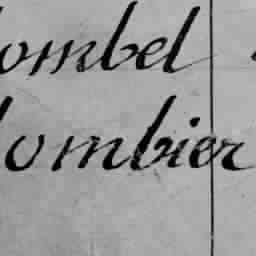 lombel
lombier